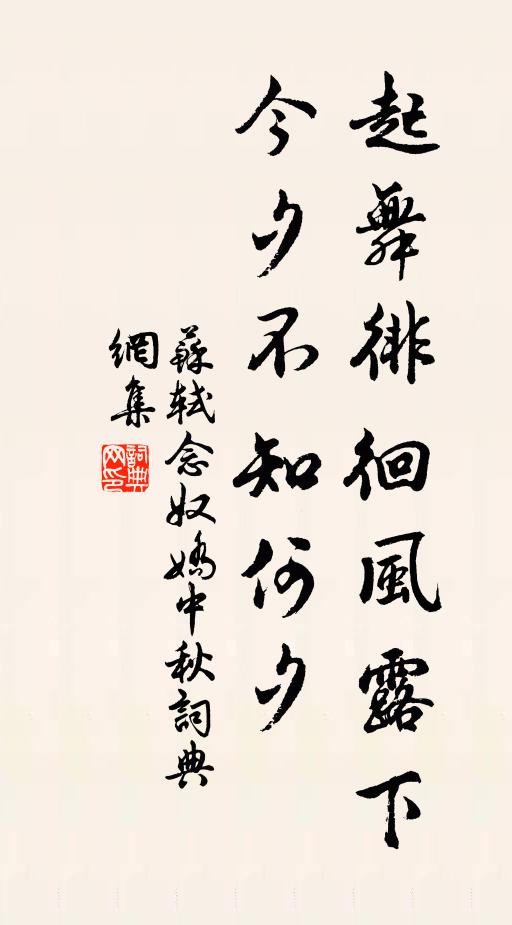 起舞徘徊風露下
今夕不知何夕
蘇軾念奴嬌中秋詞典
網集
詞典網印